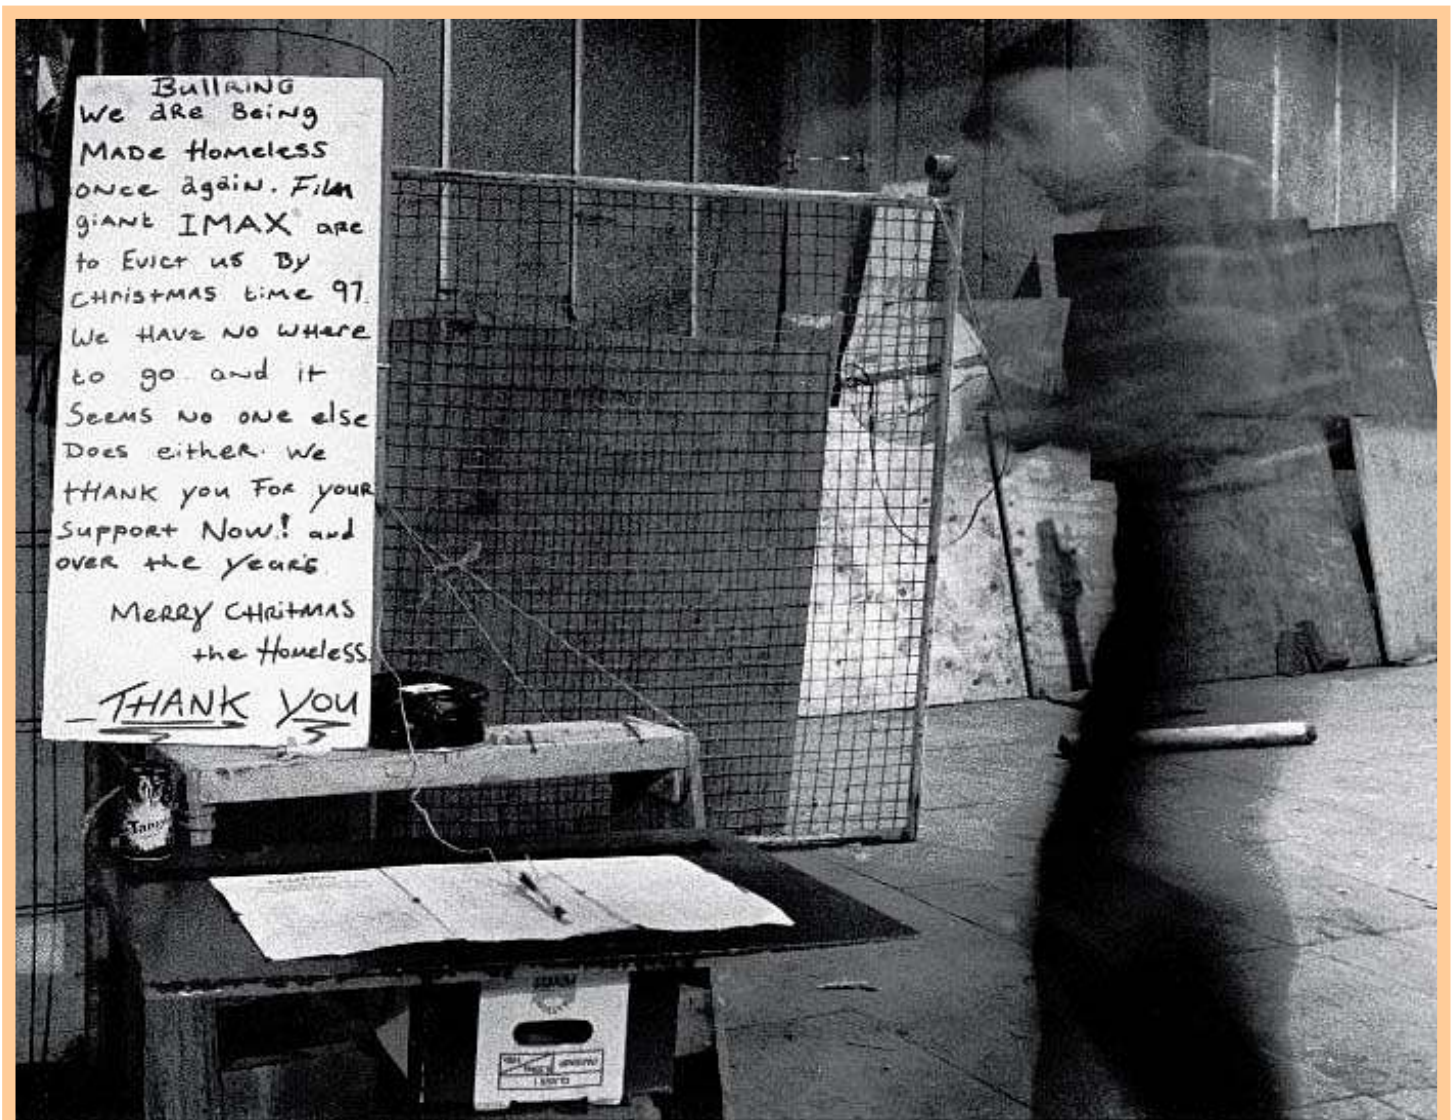 BullRING
We aRe Being
MADe Homeless
oNce again. Film
giANt IMAX are
to Evict us By
CHRistMAS time 97.
We HAVe No WHere
to go and it
Seems No oNe else
Does either. We
tHANK you For your
Support Now! and
over the years
MeRRy CHRitMAS
the Homeless.
THANK YOU
Tango
CLASS 1
PARSNIP